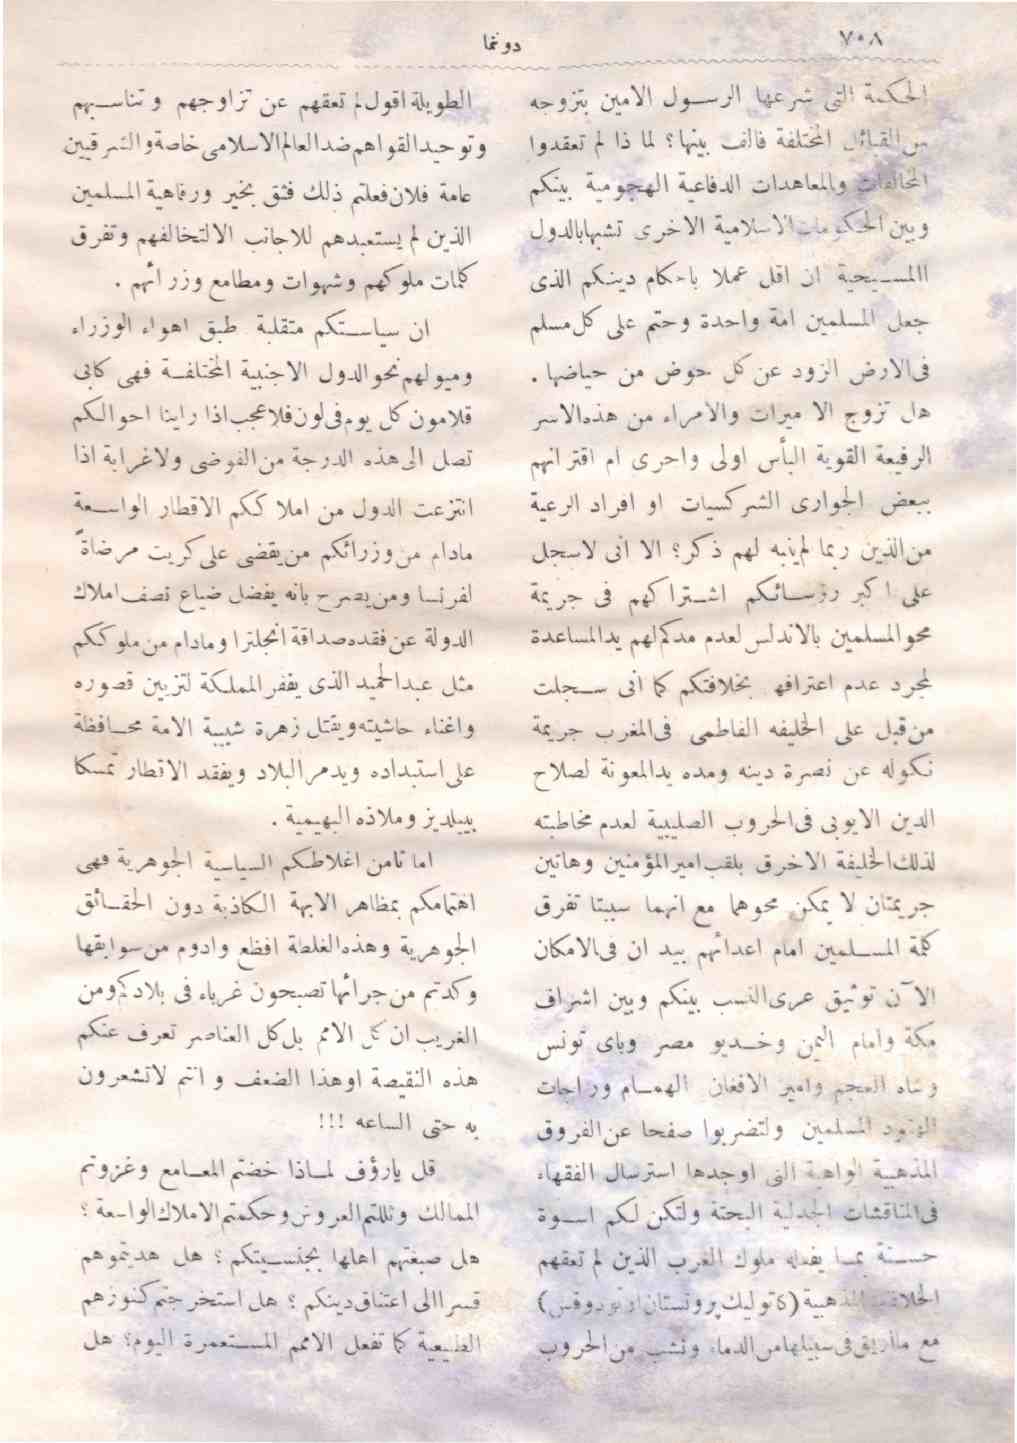 ٧٠٨
دونما
الحكمة التى شرعها الرسول الامين بتزوجه
من القبائل المختلفة فالف بينها؟ لما ذا لم تعقدوا
المحالفات والمعاهدات الدفاعية الهجومية بينكم
وبين الحكومات الاسلامية الاخرى تشبها بالدول
المسيحية ان اقل عملا باحكام دينكم الذى
جعل المسلمين امة واحدة وحتم على كل مسلم
فى الارض الزود عن كل حوض من حياضها .
هل تزوج الا ميرات والامراء من هذه الاسر
الرفيعة القوية البأس اولى واحرى ام اقترانهم
ببعض الجوارى الشركسيات او افراد الرعية
من الذين ربما لم ينبه لهم ذكر؟ الا انى لاسجل
على اكبر رؤسائكم اشتراكهم فى جريمة
محو المسلمين بالاندلس لعدم مدكم لهم يد المساعدة
لمجرد عدم اعترافهم بخلافتكم كما انى سجلت
من قبل على الخليفه الفاطمى فى المغرب جريمة
نكوله عن نصرة دينه ومده يد المعونة لصلاح
الدين الايوبى فى الحروب الصليبية لعدم مخاطبته
لذلك الخليفة الاخرق بلقب امير المؤمنين وهاتين
جريمتان لا يمكن محوهما مع انهما سببتا تفرق
كلمة المسلمين امام اعدائهم بيد ان فى الامكان
الآن توثيق عرى النسب بينكم وبين اشراف
مكة وامام اليمن وخديو مصر وباى تونس
وشاه العجم وامير الافغان الهمام وراجات
الهنود المسلمين ولتضربوا صفحا عن الفروق
المذهبية الواهية التى اوجدها استرسال الفقهاء
فى المناقشات الجدلية البحتة ولتكن لكم اسوة
حسنة بما يفعله ملوك الغرب الذين لم تعقهم
الخلافات المذهبية (كاتوليك پروتستان ارتودوقس)
مع ما اريق فى سبيلها من الدماء ونشب من الحروب
الطويلة اقول لم تعقهم عن تزاوجهم وتناسبهم
وتوحيد القواهم ضد العالم الاسلامى خاصة والشرقيين
عامة فلان فعلتم ذلك فثق بخير ورفاهية المسلمين
الذين لم يستعبدهم للاجانب الا لتخالفهم وتفرق
كلمات ملوكهم وشهوات ومطامع وزرائهم .
ان سياستكم متقلبة طبق اهواء الوزراء
وميولهم نحو الدول الاجنبية المختلفة فهى كابى
قلامون كل يوم فى لون فلا عجب اذا راينا احوالكم
تصل الى هذه الدرجة من الفوضى ولا غرابة اذا
انتزعت الدول من املا ككم الاقطار الواسعة
مادام من وزرائكم من يقضى على كريت مرضاةً
لفرنسا ومن يصرح بانه يفضل ضياع نصف املاك
الدولة عن فقده صداقة انجلترا ومادام من ملوككم
مثل عبد الحميد الذى يفقر المملكة لتزيين قصوره
واغناء حاشيته ويقتل زهرة شبيبة الامة محافظة
على استبداده ويدمر البلاد ويفقد الاقطار تمسكا
بييلديز وملاذه البهيمية .
اما ثامن اغلاطكم السياسية الجوهرية فهى
اهتمامكم بمظاهر الابهة الكاذبة دون الحقائق
الجوهرية وهذه الغلطة افظع وادوم من سوابقها
وكدتم من جرائها تصبحون غرباء فى بلادكم ومن
الغريب ان كل الامم بل كل العناصر تعرف عنكم
هذه النقيصة او هذا الضعف وانتم لا تشعرون
به حتى الساعه !!!
قل يارؤف لماذا خضتم المعامع وغزوتم
الممالك وثللتم العروش وحكمتم الاملاك الواسعة ؟
هل صبغتهم اهلها بجنسيتكم ؟ هل هديتموهم
قسرا الى اعتناق دينكم ؟ هل استخرجتم كنوزهم
الطبيعية كما تفعل الامم المستعمرة اليوم؟ هل